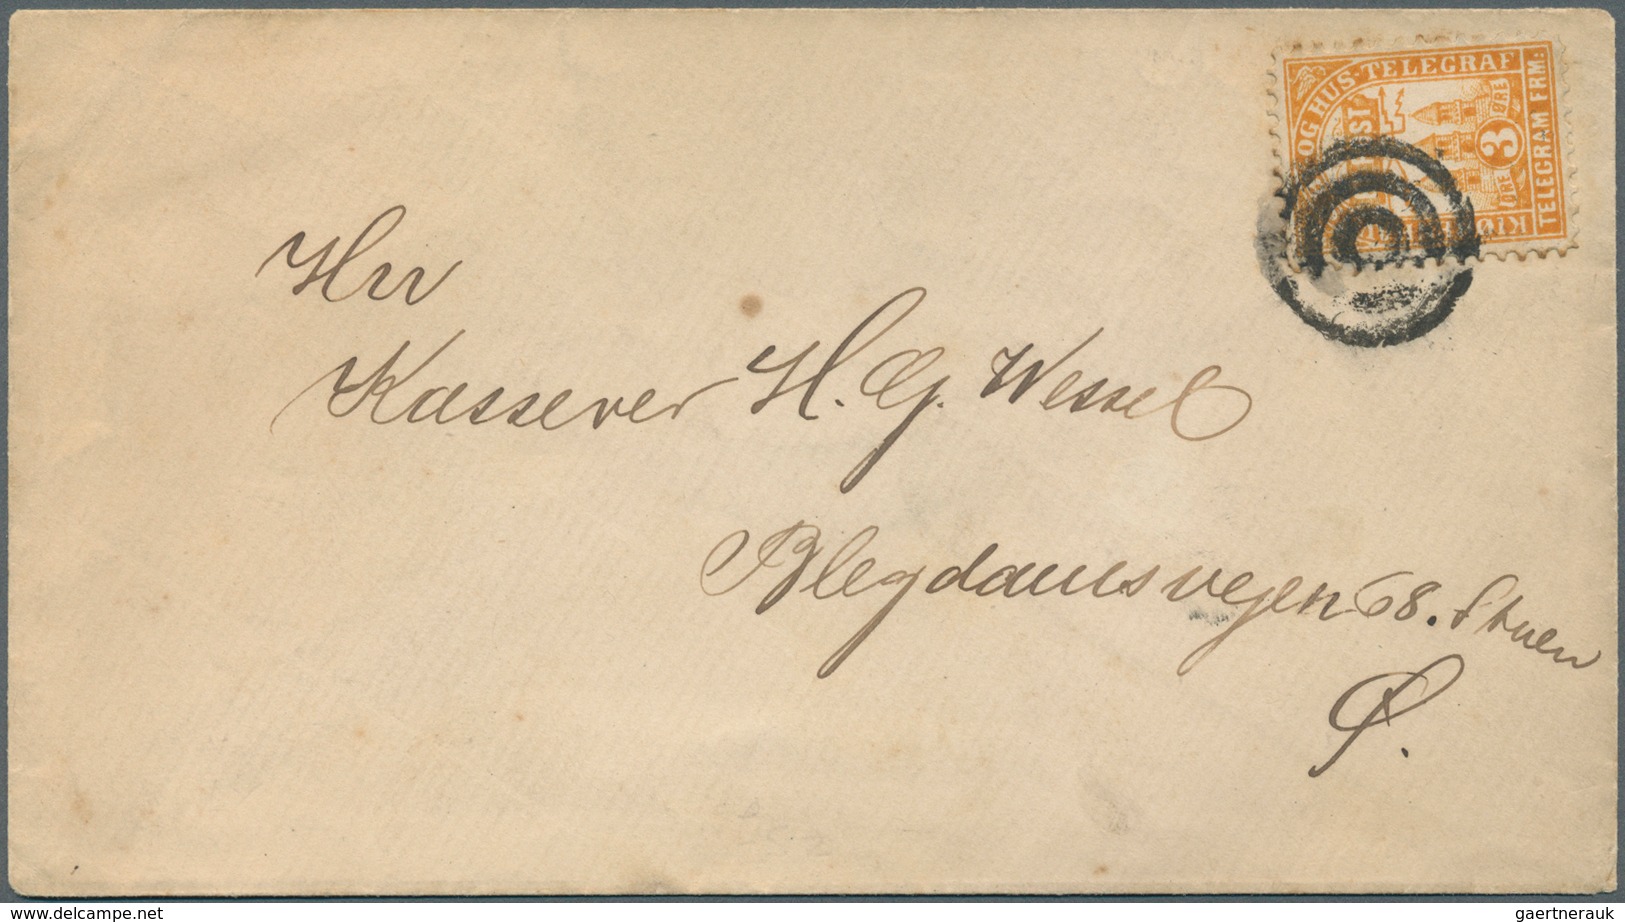 OG HUS-TELEGRAF
3 ØRE
ØRE
TELEGRAM FRM:
Hrr
Kasserer H. G. Wessel
Blegdamsvejen 68. Stuen
Ø.
gaertnerauk
www.delcampe.net